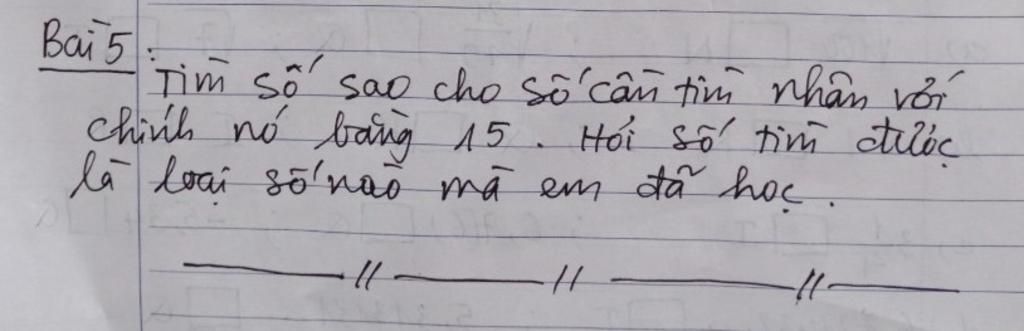 Bài 5:
Tìm số sao cho số cần tìm nhân với
chính nó bằng 15. Hỏi số tìm được
là loại số nào mà em đã học.